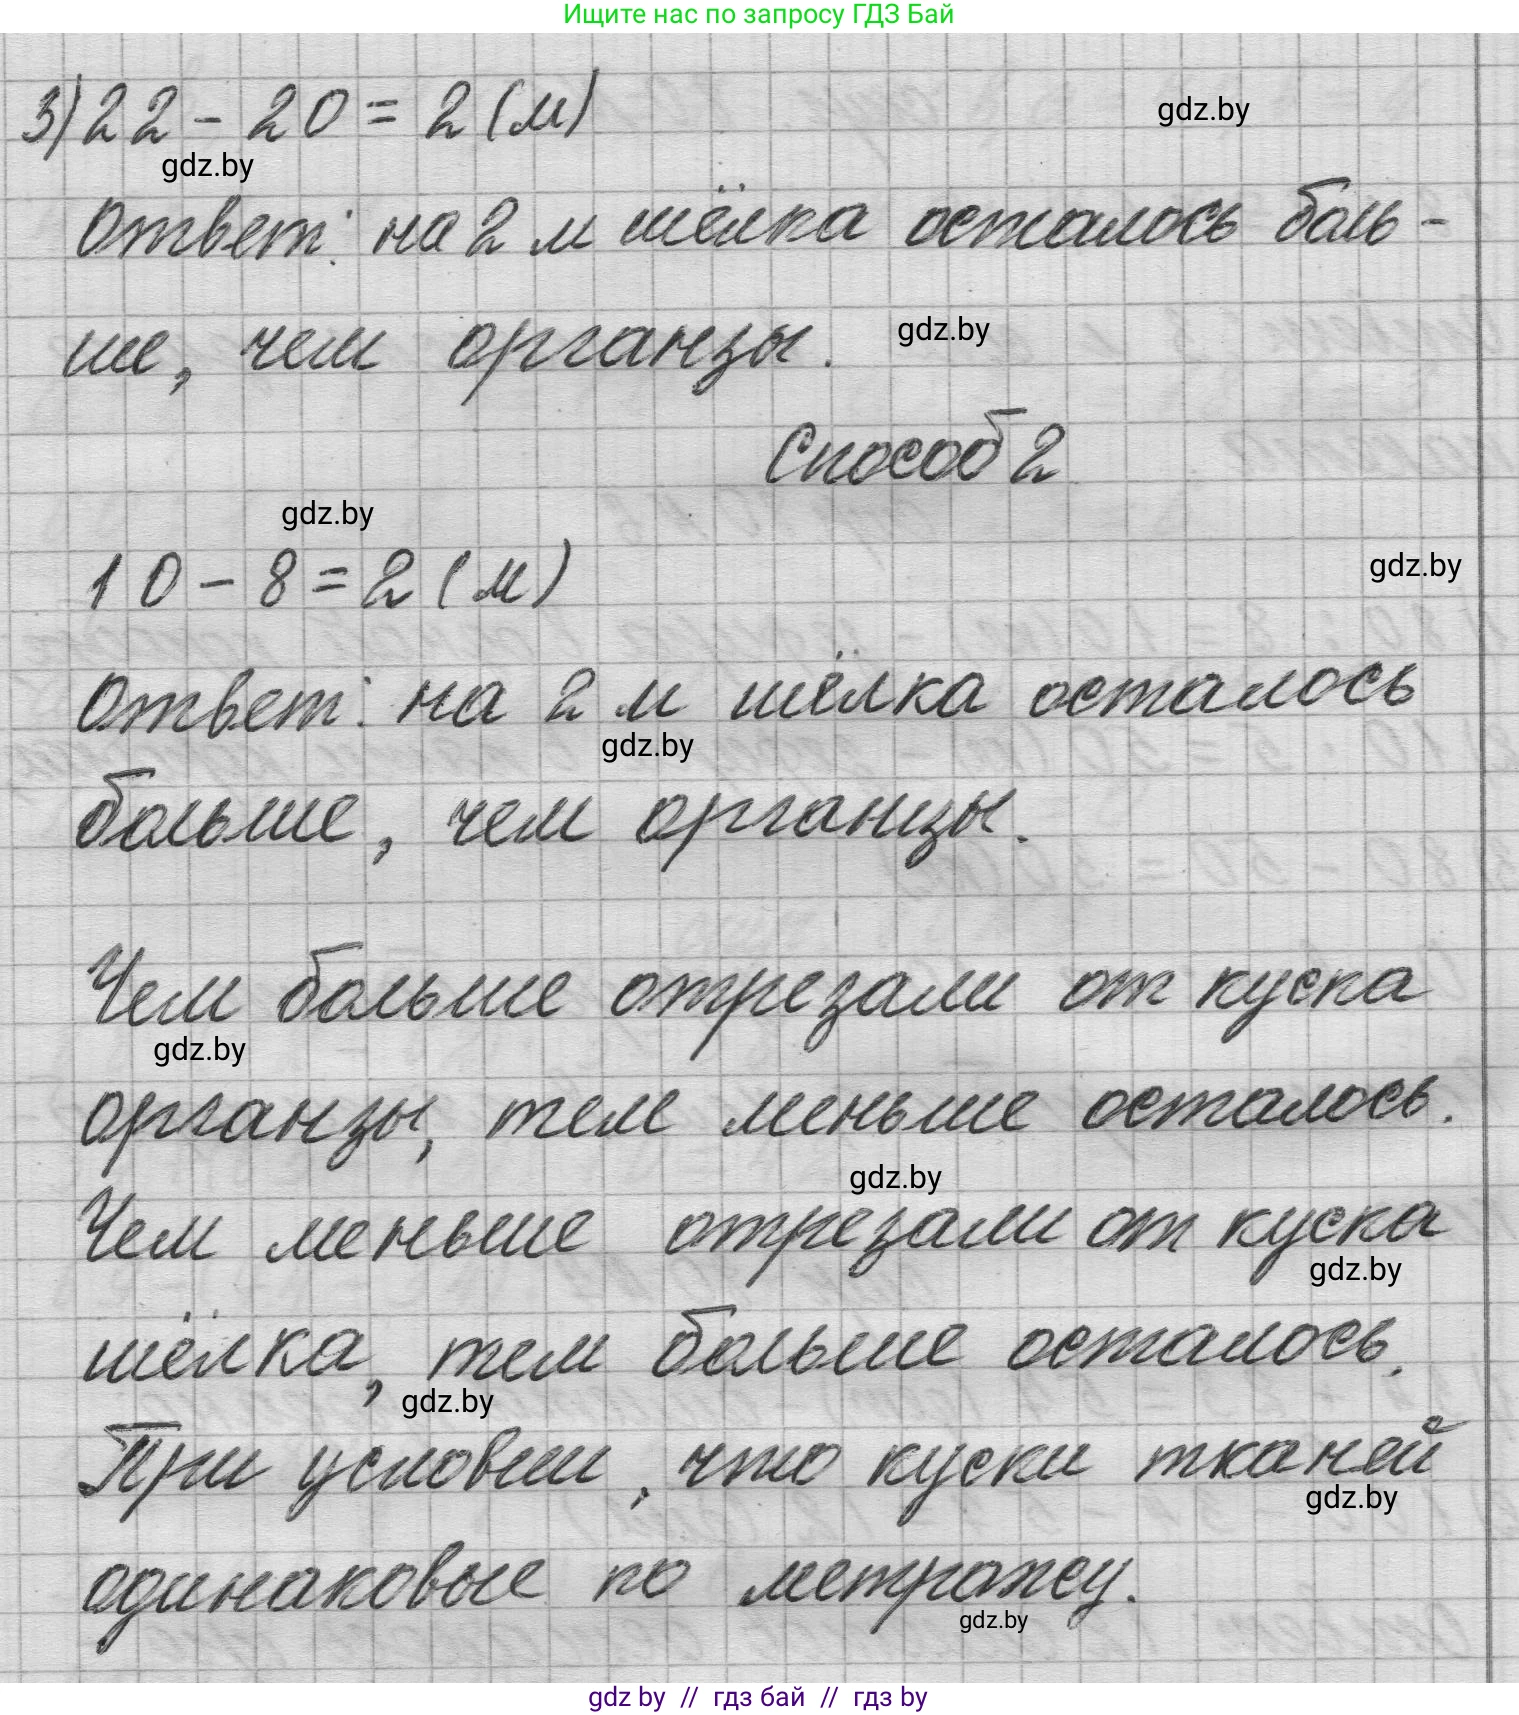 Ищите нас по запросу ГДЗ Бай
3) 22 - 20 = 2 (м)
gdz.by
gdz.by
Ответ: на 2 м шёлка осталось боль-
ше, чем органзы.
gdz.by
Способ 2
gdz.by
10 - 8 = 2 (м)
gdz.by
Ответ: на 2 м шёлка осталось
gdz.by
больше, чем органзы.
Чем больше отрезали от куска
gdz.by
органзы, тем меньше осталось.
gdz.by
Чем меньше отрезали от куска
gdz.by
шёлка, тем больше осталось.
gdz.by
При условии, что куски тканей
gdz.by
одинаковые по метражу.
gdz.by
gdz by // гдз бай // гдз by